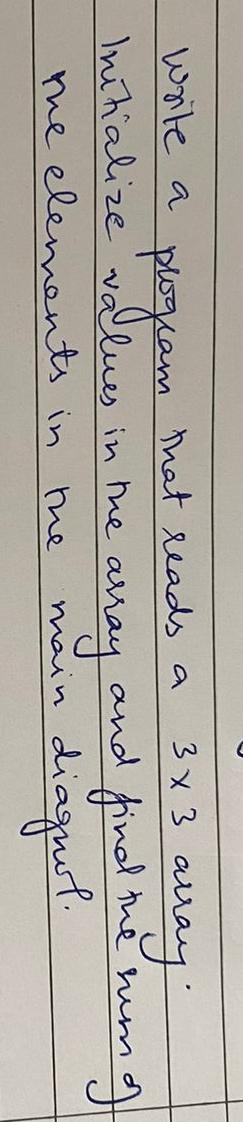 Write a program that reads a 3x3 array.
Initialize values in the array and find the sum of
the elements in the main diagnol.